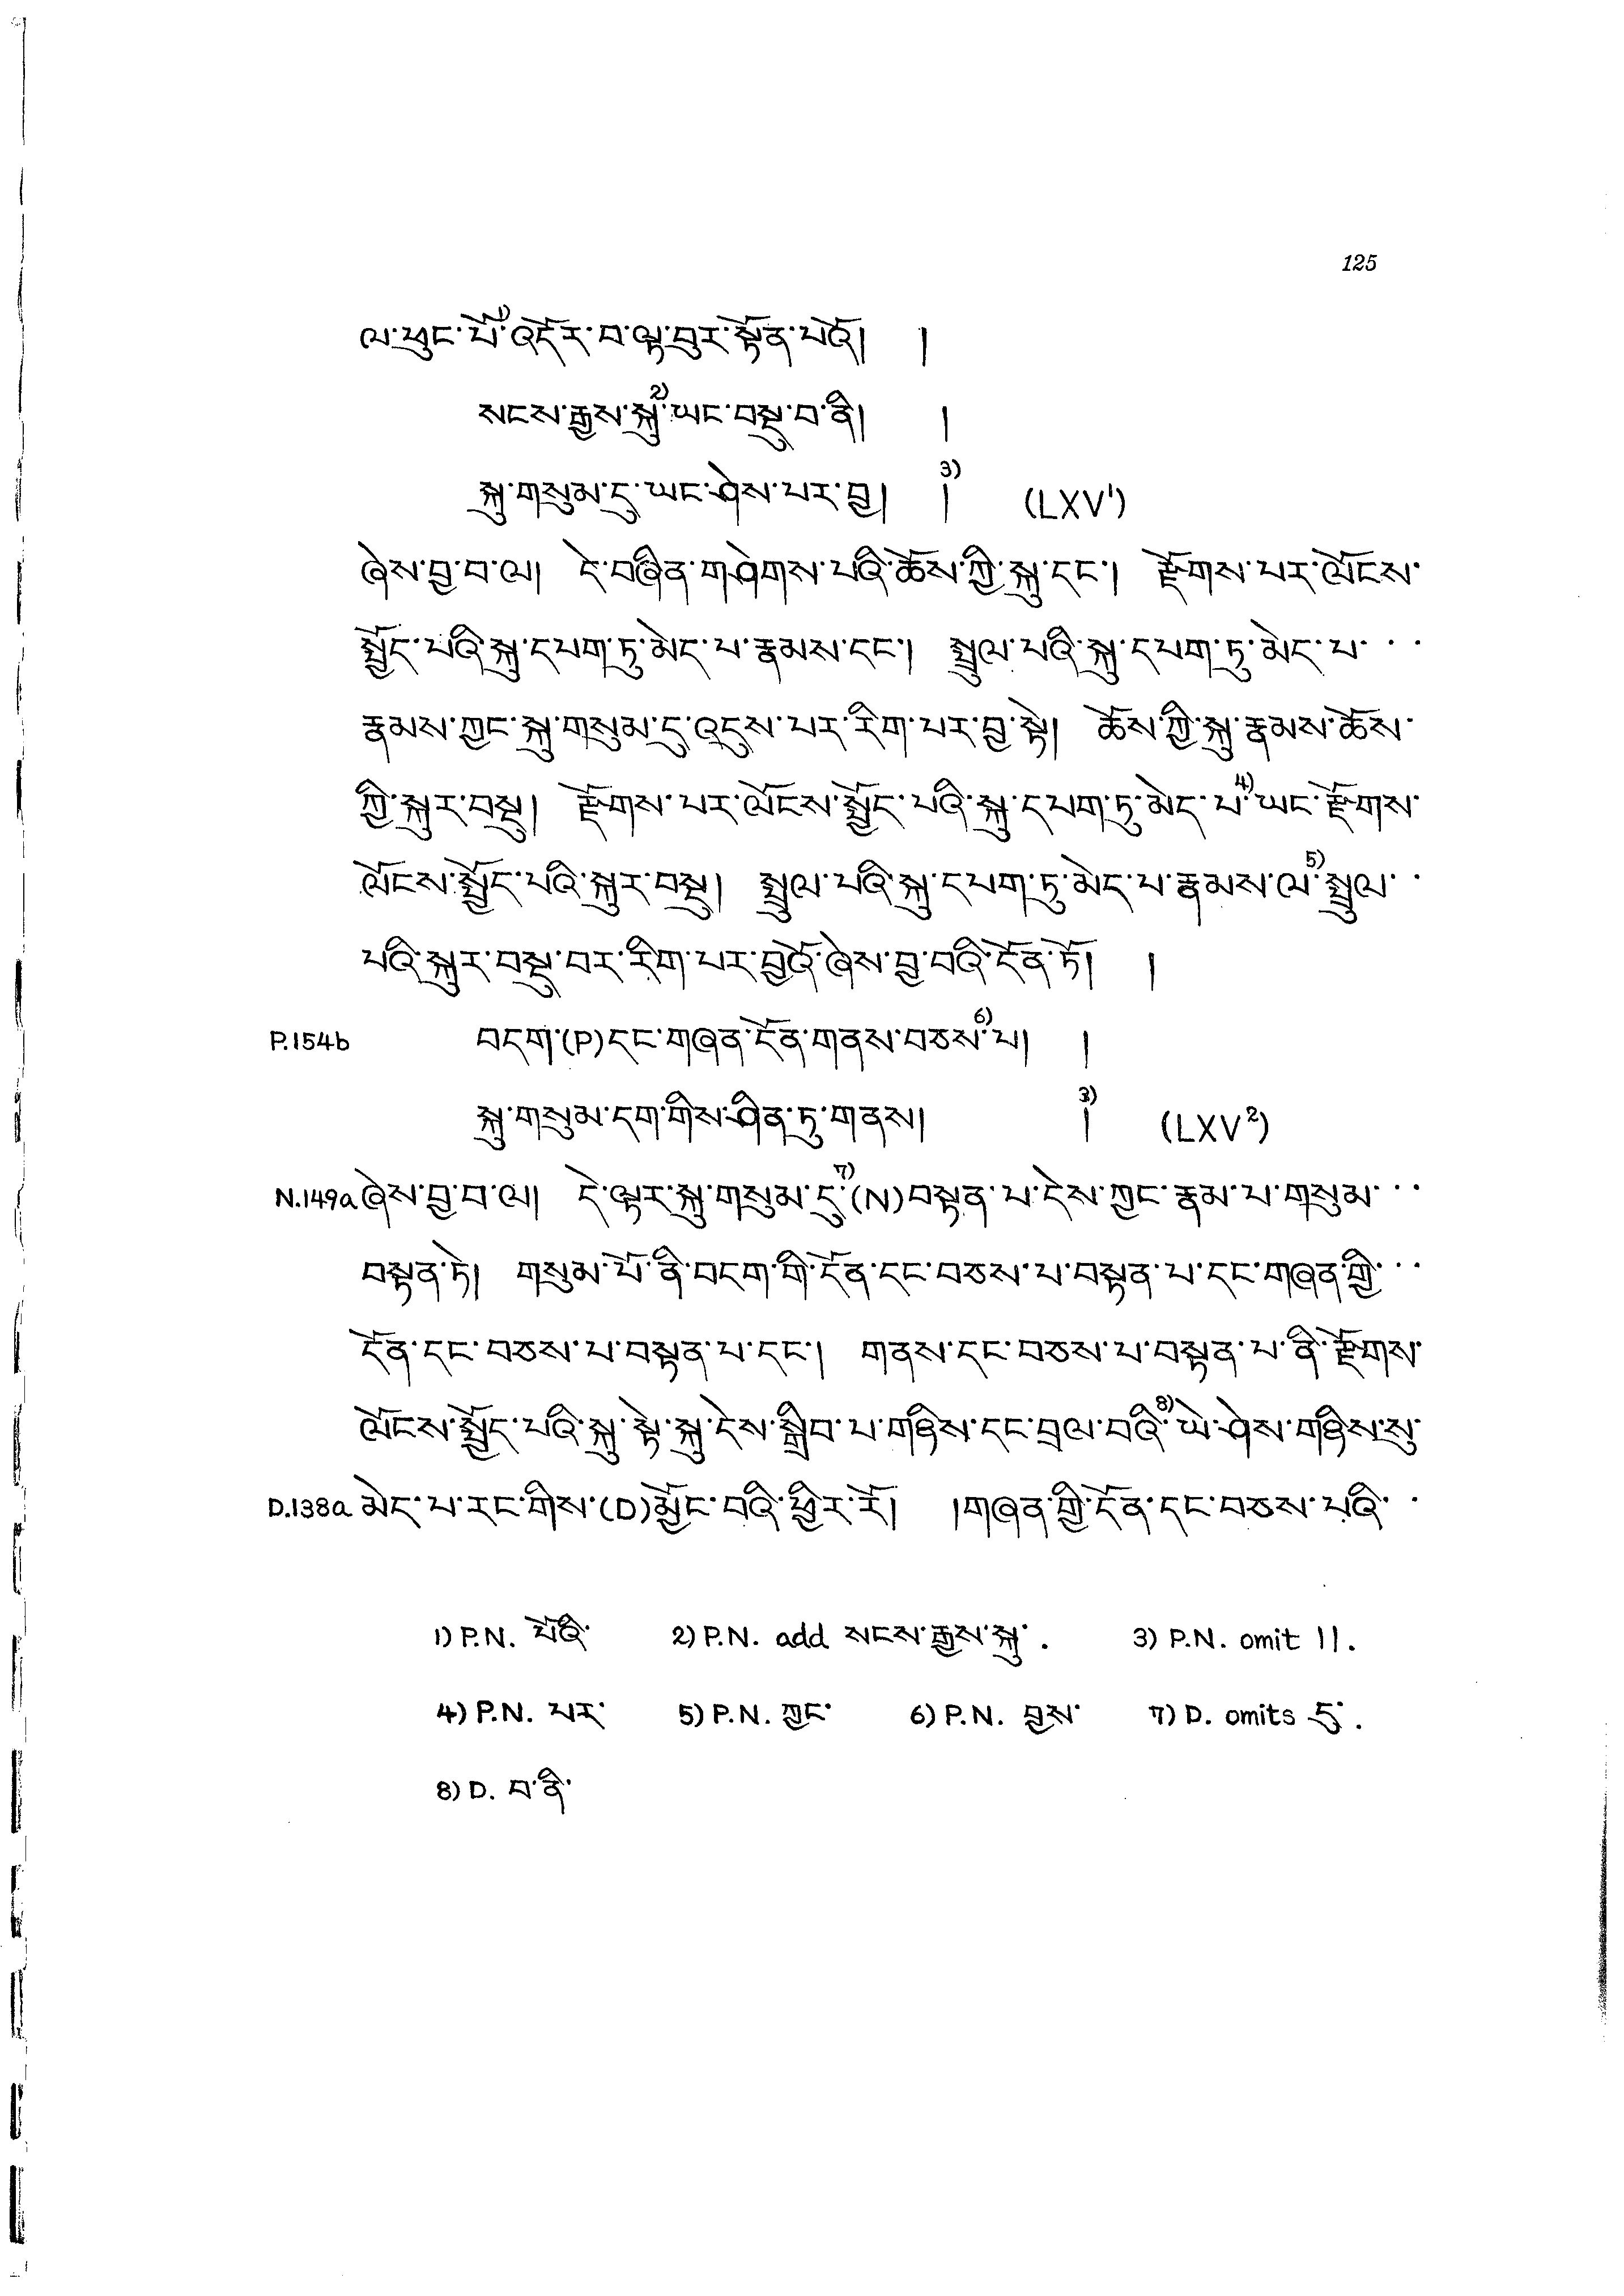 125
ལ་ཕུང་པོ་1)འདོར་བ་ལྟ་བུར་སྟོན་པའོ། །
སངས་རྒྱས་སྐུ་2)ཡང་བསྡུ་བ་ནི། །
སྐུ་གསུམ་དུ་ཡང་ཤེས་པར་བྱ། །3) (LXV¹)
ཞེས་བྱ་བ་ལ། དེ་བཞིན་གཤེགས་པའི་ཆོས་ཀྱི་སྐུ་དང་། རྫོགས་པར་ལོངས་
སྤྱོད་པའི་སྐུ་དཔག་ཏུ་མེད་པ་རྣམས་དང་། སྤྲུལ་པའི་སྐུ་དཔག་ཏུ་མེད་པ་་་
རྣམས་ཀྱང་སྐུ་གསུམ་དུ་འདུས་པར་རིག་པར་བྱ་སྟེ། ཆོས་ཀྱི་སྐུ་རྣམས་ཆོས་
ཀྱི་སྐུར་བསྡུ། རྫོགས་པར་ལོངས་སྤྱོད་པའི་སྐུ་དཔག་ཏུ་མེད་པ་4)ཡང་རྫོགས་
ལོངས་སྤྱོད་པའི་སྐུར་བསྡུ། སྤྲུལ་པའི་སྐུ་དཔག་ཏུ་མེད་པ་རྣམས་ལ་5)སྤྲུལ་་
པའི་སྐུར་བསྡུ་བར་རིག་པར་བྱའོ་ཞེས་བྱ་བའི་དོན་ཏོ། །
P.154b བདག་(P)དང་གཞན་དོན་གནས་བཅས་6)པ། །
སྐུ་གསུམ་དག་གིས་ཤིན་ཏུ་གནས། །3) (LXV²)
N.149a ཞེས་བྱ་བ་ལ། དེ་ལྟར་སྐུ་གསུམ་དུ་7)(N)བསྟན་པ་དེས་ཀྱང་རྣམ་པ་གསུམ་་་
བསྟན་ཏེ། གསུམ་པོ་ནི་བདག་གི་དོན་དང་བཅས་པ་བསྟན་པ་དང་གཞན་གྱི་་་
དོན་དང་བཅས་པ་བསྟན་པ་དང་། གནས་དང་བཅས་པ་བསྟན་པ་ནི་རྫོགས་
ལོངས་སྤྱོད་པའི་སྐུ་སྟེ་སྐུ་དེས་སྒྲིབ་པ་གཉིས་དང་བྲལ་བའི་8)ཡེ་ཤེས་གཉིས་སུ་
D.138a མེད་པ་རང་གིས་(D)མྱོང་བའི་ཕྱིར་རོ། །གཞན་གྱི་དོན་དང་བཅས་པའི་་
1) P.N. པོའི་ 2) P.N. add སངས་རྒྱས་སྐུ་. 3) P.N. omit །།.
4) P.N. པར་ 5) P.N. ཀྱང་ 6) P.N. བྱས་ 7) D. omits དུ་.
8) D. བ་ནི་